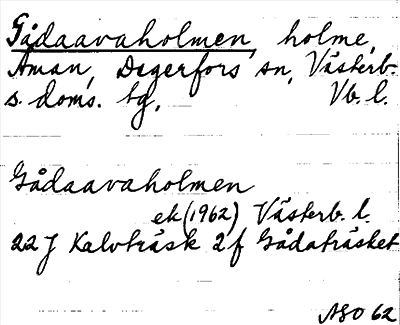 Gådaavaholmen, holme,
Åman, Degerfors sn, Västerb.
s. doms. tg, Vb. l.
Gådaavaholmen
ek (1962) Västerb. l.
22 J Kalvträsk 2 f Gådaträsket
ASO 62